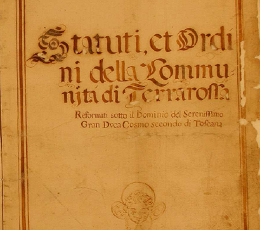 Statuti, et Ordi
ni della Commu
nita di Terrarossa
Reformati sotto il Dominio del Serenissimo
Gran Duca Cosimo secondo di Toscana